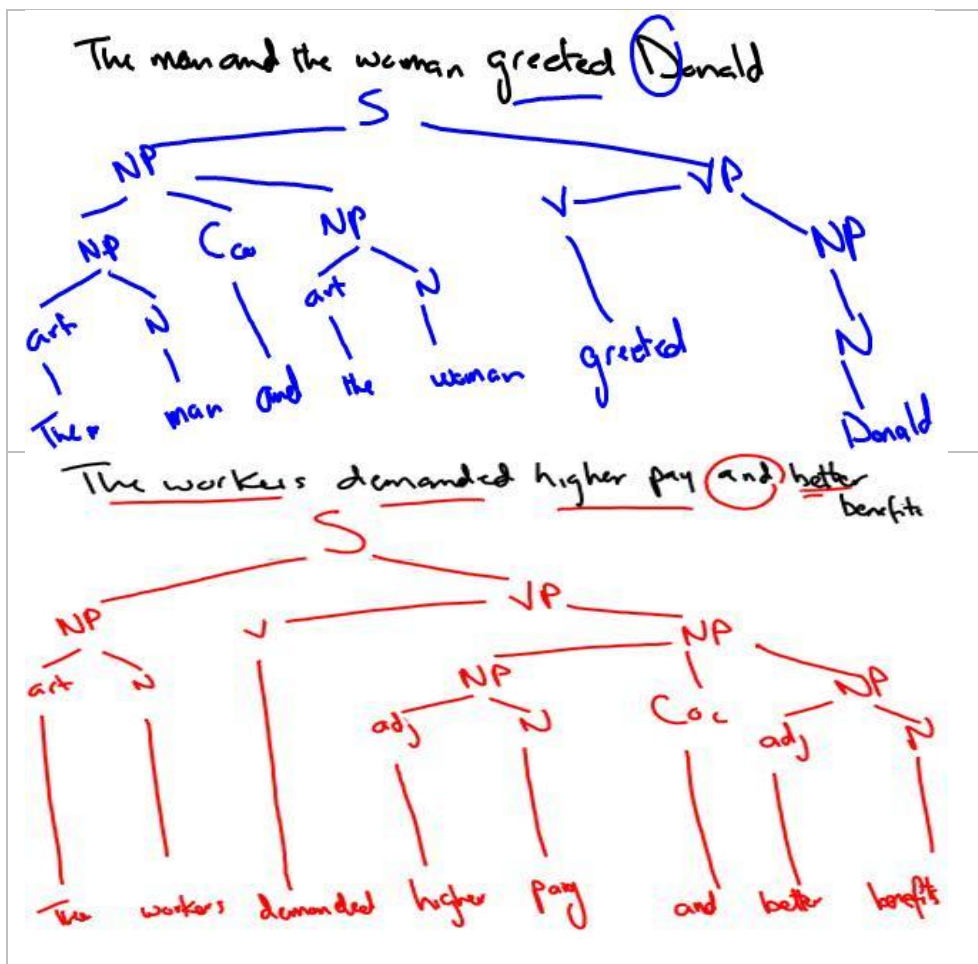 The man and the woman greeted Donald
S
NP VP
NP NP V NP
art N art N N
The man and the woman greeted Donald
The workers demanded higher pay and better
benefits
S
NP V VP
art N NP NP
adj N Coc adj NP N
The workers demanded higher pay and better benefits